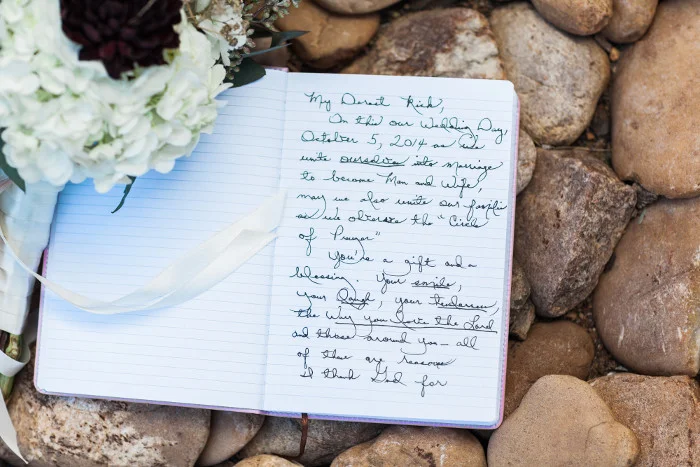 My Dearest Rick,
On this our Wedding Day,
October 5, 2014 as we
unite ourselves into marriage
to become Man and Wife,
may we also unite our families
as we observe the "Circle
of Prayer"
You're a gift and a
blessing. Your smile,
your laugh, your tenderness,
the way you love the Lord
and those around you — all
of these are reasons
I thank God for